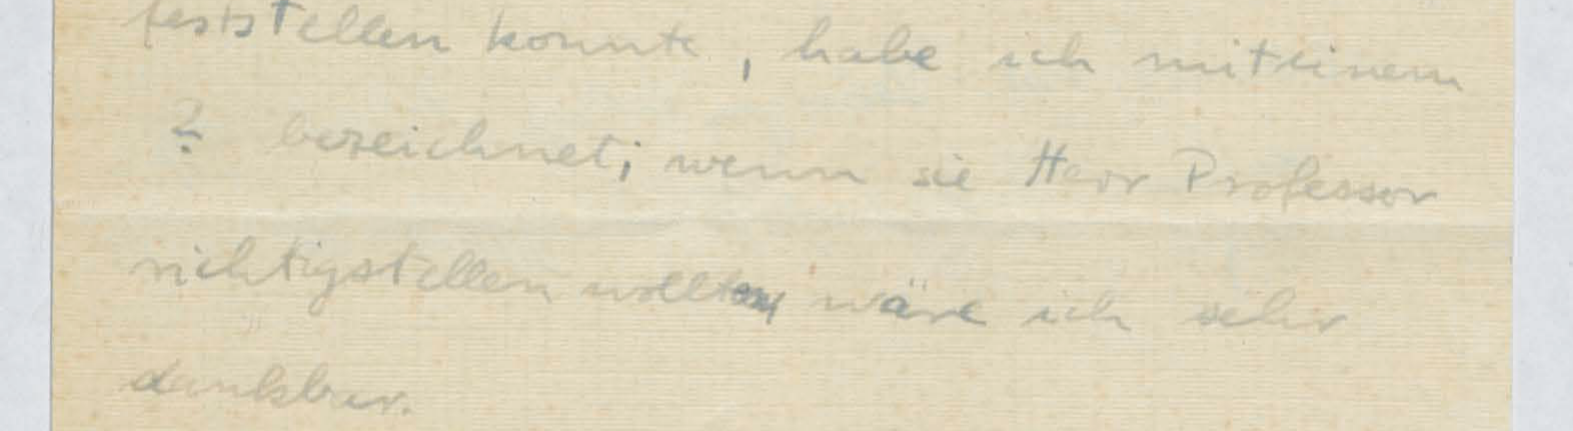 feststellen konnte, habe ich mit einem
? bezeichnet; wenn sie Herr Professor
richtigstellen wollten wäre ich sehr
dankbar.